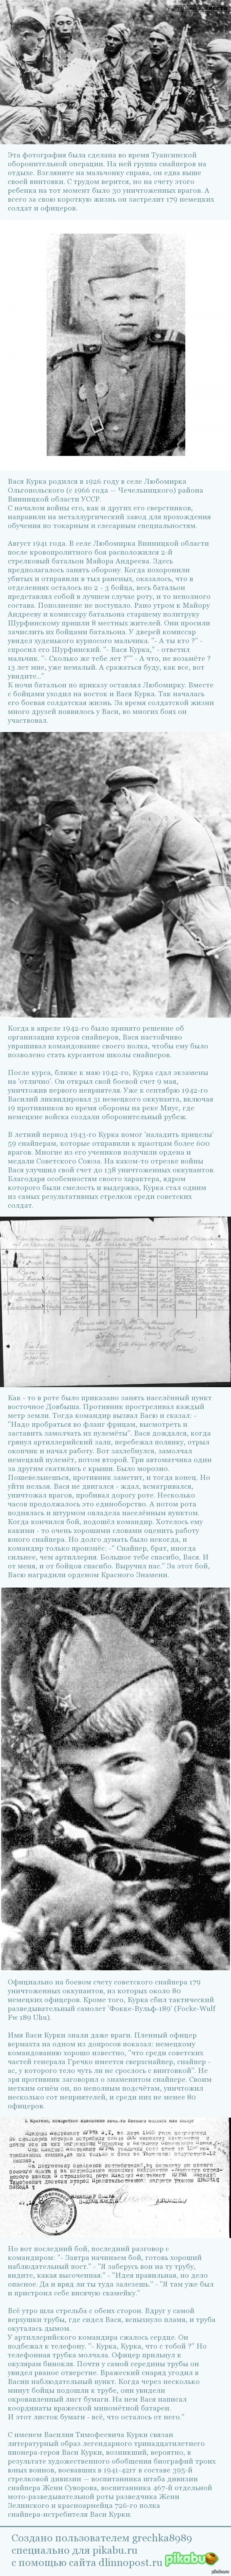 Эта фотография была сделана во время Туапсинской
оборонительной операции. На ней группа снайперов на
отдыхе. Взгляните на мальчонку справа, он едва выше
своей винтовки. С трудом верится, но на счету этого
ребенка на тот момент было 30 уничтоженных врагов. А
всего за свою короткую жизнь он застрелит 179 немецких
солдат и офицеров.
Вася Курка родился в 1926 году в селе Любомирка
Ольгопольского (с 1966 года — Чечельницкого) района
Винницкой области УССР.
С началом войны его, как и других его сверстников,
направили на металлургический завод для прохождения
обучения по токарным и слесарным специальностям.
Август 1941 года. В селе Любомирка Винницкой области
после кровопролитного боя расположился 2-й
стрелковый батальон Майора Андреева. Здесь
предполагалось занять оборону. Когда похоронили
убитых и отправили в тыл раненых, оказалось, что в
отделениях осталось по 2 - 3 бойца, весь батальон
представлял собой в лучшем случае роту, и то неполного
состава. Пополнение не поступало. Рано утром к Майору
Андрееву и комиссару батальона старшему политруку
Шурфинскому пришли 8 местных жителей. Они просили
зачислить их бойцами батальона. У дверей комиссар
увидел худенького курносого мальчика. "- А ты кто ?" -
спросил его Шурфинский. "- Вася Курка," - ответил
мальчик. "- Сколько же тебе лет ?"" - А что, не возьмёте ?
13 лет мне, уже немалый. А сражаться буду, как все, вот
увидите..."
К ночи батальон по приказу оставлял Любомирку. Вместе
с бойцами уходил на восток и Вася Курка. Так началась
его боевая солдатская жизнь. За время солдатской жизни
много друзей появилось у Васи, во многих боях он
участвовал.
Когда в апреле 1942-го было принято решение об
организации курсов снайперов, Вася настойчиво
упрашивал командование своего полка, чтобы ему было
позволено стать курсантом школы снайперов.
После курса, ближе к маю 1942-го, Курка сдал экзамены
на 'отлично'. Он открыл свой боевой счет 9 мая,
уничтожив первого неприятеля. Уже к сентябрю 1942-го
Василий ликвидировал 31 немецкого оккупанта, включая
19 противников во время обороны на реке Миус, где
немецкие войска создали оборонительный рубеж.
В летний период 1943-го Курка помог 'наладить прицелы'
59 снайперам, которые отправили к праотцам более 600
врагов. Многие из его учеников получили ордена и
медали Советского Союза. На каком-то отрезке войны
Вася улучшил свой счет до 138 уничтоженных оккупантов.
Благодаря особенностям своего характера, ядром
которого были смелость и выдержка, Курка стал одним
из самых результативных стрелков среди советских
солдат.
Как - то в роте было приказано занять населённый пункт
восточное Довбыша. Противник простреливал каждый
метр земли. Тогда командир вызвал Васю и сказал: -
"Надо пробраться во фланг фрицам, высмотреть и
заставить замолчать их пулемёты". Вася дождался, когда
грянул артиллерийский залп, перебежал поляну, отрыл
окопчик и начал работу. Вот захлебнулся, замолчал
немецкий пулемёт, потом второй. Три автоматчика один
за другим скатились с крыши. Было морозно.
Пошевельнешься, противник заметит, и тогда конец. Но
уйти нельзя. Вася не двигался - ждал, всматривался,
уничтожал врагов, пробивал дорогу роте. Несколько
часов продолжалось это единоборство. А потом рота
поднялась и штурмом овладела населённым пунктом.
Когда кончился бой, подошёл командир. Хотелось ему
какими - то очень хорошими словами оценить работу
юного снайпера. Но долго думать было некогда, и
командир только произнёс: -" Снайпер, брат, иногда
сильнее, чем артиллерия. Большое тебе спасибо, Вася. И
от меня, и от бойцов спасибо. Выручил нас." За этот бой,
Васю наградили орденом Красного Знамени.
Официально на боевом счету советского снайпера 179
уничтоженных оккупантов, из которых около 80
немецких офицеров. Кроме того, Курка сбил тактический
разведывательный самолет 'Фокке-Вульф-189' (Focke-Wulf
Fw 189 Uhu).
Имя Васи Курки знали даже враги. Пленный офицер
вермахта на одном из допросов показал: немецкому
командованию хорошо известно, "что среди советских
частей генерала Гречко имеется сверхснайпер, снайпер -
ас, у которого тело чуть ли не срослось с винтовкой". Не
зря противник заговорил о знаменитом снайпере. Своим
метким огнём он, по неполным подсчётам, уничтожил
несколько сот неприятелей, и среди них не менее 80
офицеров.
Но вот последний бой, последний разговор с
командиром: "- Завтра начинаем бой, готовь хороший
наблюдательный пост." - "Я заберусь вон на ту трубу,
видите, какая высоченная." - "Идея правильная, но дело
опасное. Да и вряд ли ты туда залезешь." - "Я там уже был
и пристроил себе висячую скамейку."
Всё утро шла стрельба с обеих сторон. Вдруг у самой
верхушки трубы, где сидел Вася, вспыхнуло пламя, и труба
окуталась дымом.
У артиллерийского командира сжалось сердце. Он
подбежал к телефону. "- Курка, Курка, что с тобой ?" Но
телефонная трубка молчала. Офицер прильнул к
окулярам бинокля. Почти у самой середины трубы он
увидел рваное отверстие. Вражеский снаряд угодил в
Васин наблюдательный пункт. Когда через несколько
минут бойцы подошли к трубе, они увидели
окровавленный лист бумаги. На нем Вася написал
координаты вражеской миномётной батареи.
И этот листок бумаги - всё, что осталось от него."
С именем Василия Тимофеевича Курки связан
литературный образ легендарного тринадцатилетнего
пионера-героя Васи Курки, возникший, вероятно, в
результате художественного обобщения биографий троих
юных воинов, воевавших в 1941-42гг в составе 395-й
стрелковой дивизии — воспитанника штаба дивизии
снайпера Жени Суворова, воспитанника 467-й отдельной
мото-разведывательной роты разведчика Жени
Зелинского и красноармейца 726-го полка
снайпера-истребителя Васи Курки.
Создано пользователем grechka8989
специально для pikabu.ru
с помощью сайта dlinnopost.ru
pikabu
pikabu.ru